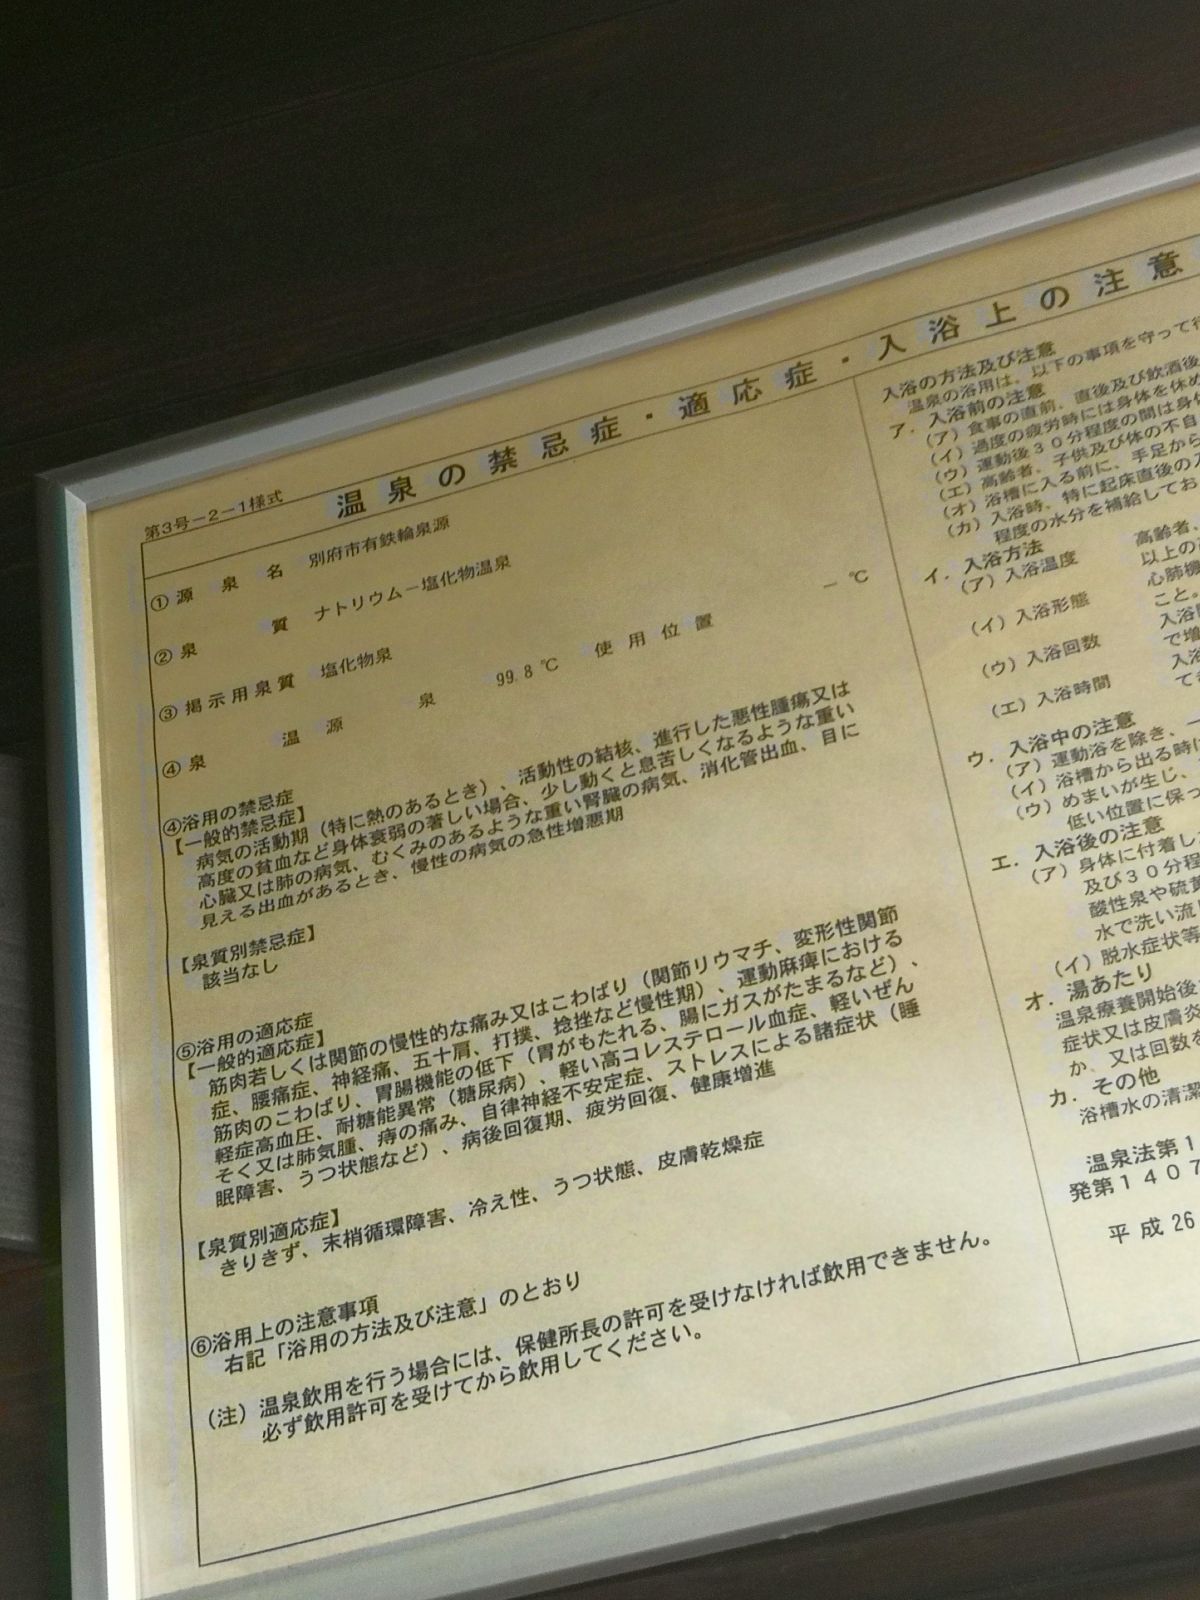 第3号－2－1様式
温泉の禁忌症・適応症・入浴上の注意
①源泉名 別府市有鉄輪泉源
②泉質 ナトリウム－塩化物温泉
③掲示用泉質 塩化物泉
④泉温 源泉 99.8℃ 使用位置 －℃
④浴用の禁忌症
【一般的禁忌症】
病気の活動期（特に熱のあるとき）、活動性の結核、進行した悪性腫瘍又は
高度の貧血など身体衰弱の著しい場合、少し動くと息苦しくなるような重い
心臓又は肺の病気、むくみのあるような重い腎臓の病気、消化管出血、目に
見える出血があるとき、慢性の病気の急性増悪期
【泉質別禁忌症】
該当なし
⑤浴用の適応症
【一般的適応症】
筋肉若しくは関節の慢性的な痛み又はこわばり（関節リウマチ、変形性関節
症、腰痛症、神経痛、五十肩、打撲、捻挫など慢性期）、運動麻痺における
筋肉のこわばり、胃腸機能の低下（胃がもたれる、腸にガスがたまるなど）、
軽症高血圧、耐糖能異常（糖尿病）、軽い高コレステロール血症、軽いぜん
そく又は肺気腫、痔の痛み、自律神経不安定症、ストレスによる諸症状（睡
眠障害、うつ状態など）、病後回復期、疲労回復、健康増進
【泉質別適応症】
きりきず、末梢循環障害、冷え性、うつ状態、皮膚乾燥症
⑥浴用上の注意事項
右記「浴用の方法及び注意」のとおり
（注）温泉飲用を行う場合には、保健所長の許可を受けなければ飲用できません。
必ず飲用許可を受けてから飲用してください。
入浴の方法及び注意
温泉の浴用は、以下の事項を守って
ア．入浴前の注意
（ア）食事の直前、直後及び飲酒後
（イ）過度の疲労時には身体を休め
（ウ）運動後30分程度の間は身体
（エ）高齢者、子供及び体の不自
（オ）浴槽に入る前に、手足から
（カ）入浴時、特に起床直後の入
程度の水分を補給してお
イ．入浴方法
（ア）入浴温度 高齢者、
以上の
心肺機
こと。
（イ）入浴形態
（ウ）入浴回数 入浴
で増
（エ）入浴時間 入浴
てき
ウ．入浴中の注意
（ア）運動浴を除き、一
（イ）浴槽から出る時に
（ウ）めまいが生じ、
低い位置に保っ
エ．入浴後の注意
（ア）身体に付着し
及び30分程
酸性泉や硫黄
水で洗い流し
（イ）脱水症状等
オ．湯あたり
温泉療養開始後
症状又は皮膚炎
か、又は回数を
カ．その他
浴槽水の清潔
温泉法第1
発第1407
平成26